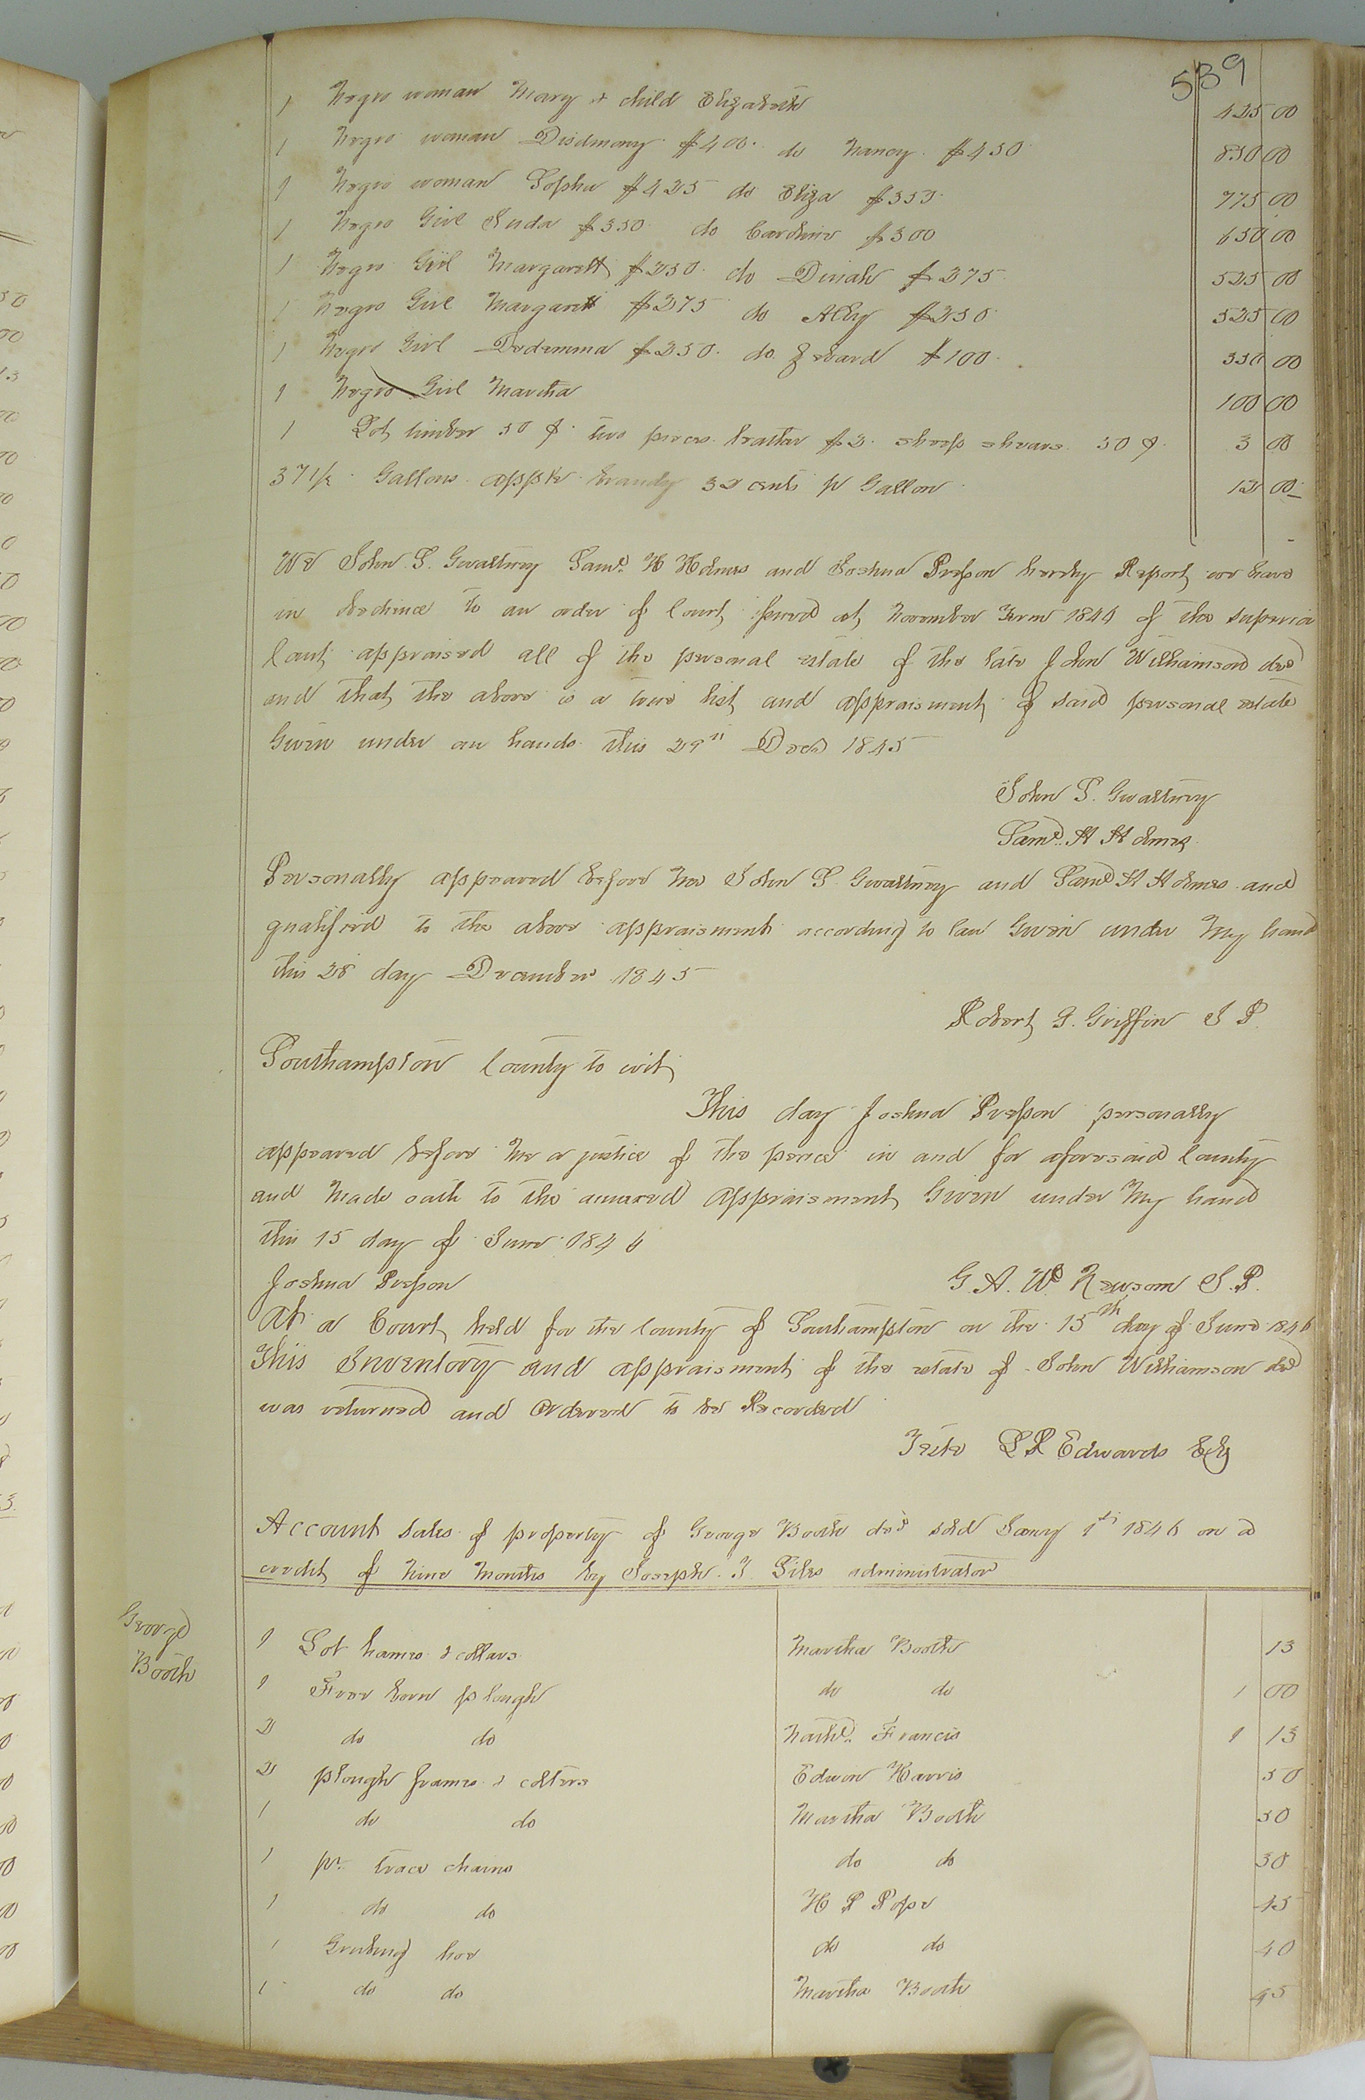 539
1 Negro woman Mary & child Elizabeth 425 00
1 Negro woman Disdmony $400. do Nancy $450 850 00
1 Negro woman Sopha $425 do Eliza $350 775 00
1 Negro Girl Juda $350 do Caroline $300 650 00
1 Negro Girl Margarett $250. do Dinah $275 525 00
1 Negro Girl Margarett $275 do Alcy $250 525 00
1 Negro Girl Dedemma $250. do $100. 350 00
1 Negro Girl Martha 100 00
1 Lot timber 50 ¢. two pieces leather $2. sheep shears 50 ¢. 3 00
37 1/2 Gallons apple brandy 32 cents pr Gallon 12 00
We John P. Gwaltney Saml. H Holmes and Joshua Presson hereby Report we have
in obedience to an order of Court issued at November Term 1846 of the superior
Court appraised all of the personal estate of the late John Williamson decd
and that the above is a true list and appraisment of said personal estate
Given under our hands this 29th Decr 1845
John P. Gwaltney
Saml. H Holmes
Personally appeared before me John P. Gwaltney and Saml H Holmes and
qualified to the above appraisment according to law Given under my hand
this 28 day December 1845
Robert G. Griffin J P.
Southampton County to wit
This day Joshua Presson personally
appeared before me a justice of the peace in and for aforesaid County
and made oath to the annexed appraisement Given under my hand
this 15 day of June 1846
Joshua Presson G. A. W. Newsom J. P.
At a Court held for the County of Southampton on the 15th day of June 1846
This Inventory and appraisment of the estate of John Williamson decd
was returned and Ordered to be Recorded
Teste L R Edwards Clk
Account sales of property of George Booth decd sold Jany 1st 1846 on a
credit of nine months by Joseph T Giles administrator
George
Booth
1 Lot hames & collars Martha Booth 13
1 Four horn plough do do 1 00
2 do do Nathl. Francis 1 13
2 plough frames & colters Edwin Harris 50
1 do do Martha Booth 50
1 pr. trace chains do do 30
1 do do H P Pope 45
1 Grubing hoe do do 40
1 do do Martha Booth 95